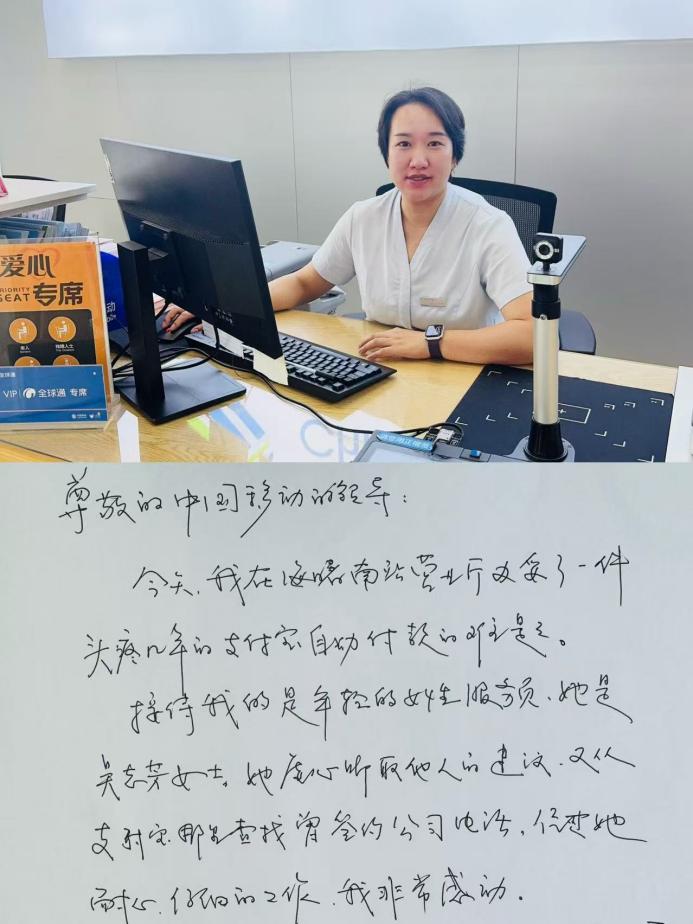 爱心
PRIORITY
SEAT 专席
VIP 全球通 专席
尊敬的中国移动的领导：
今天，我在海曙南站营业厅办妥了一件
头疼几年的支付宝自动付款的难题。
接待我的是年轻的女性服务员，她是
吴志芳女士。她虚心听取他人的建议，又从
支付宝那里查找曾签约公司电话，经过她
耐心、仔细的工作，我非常感动。